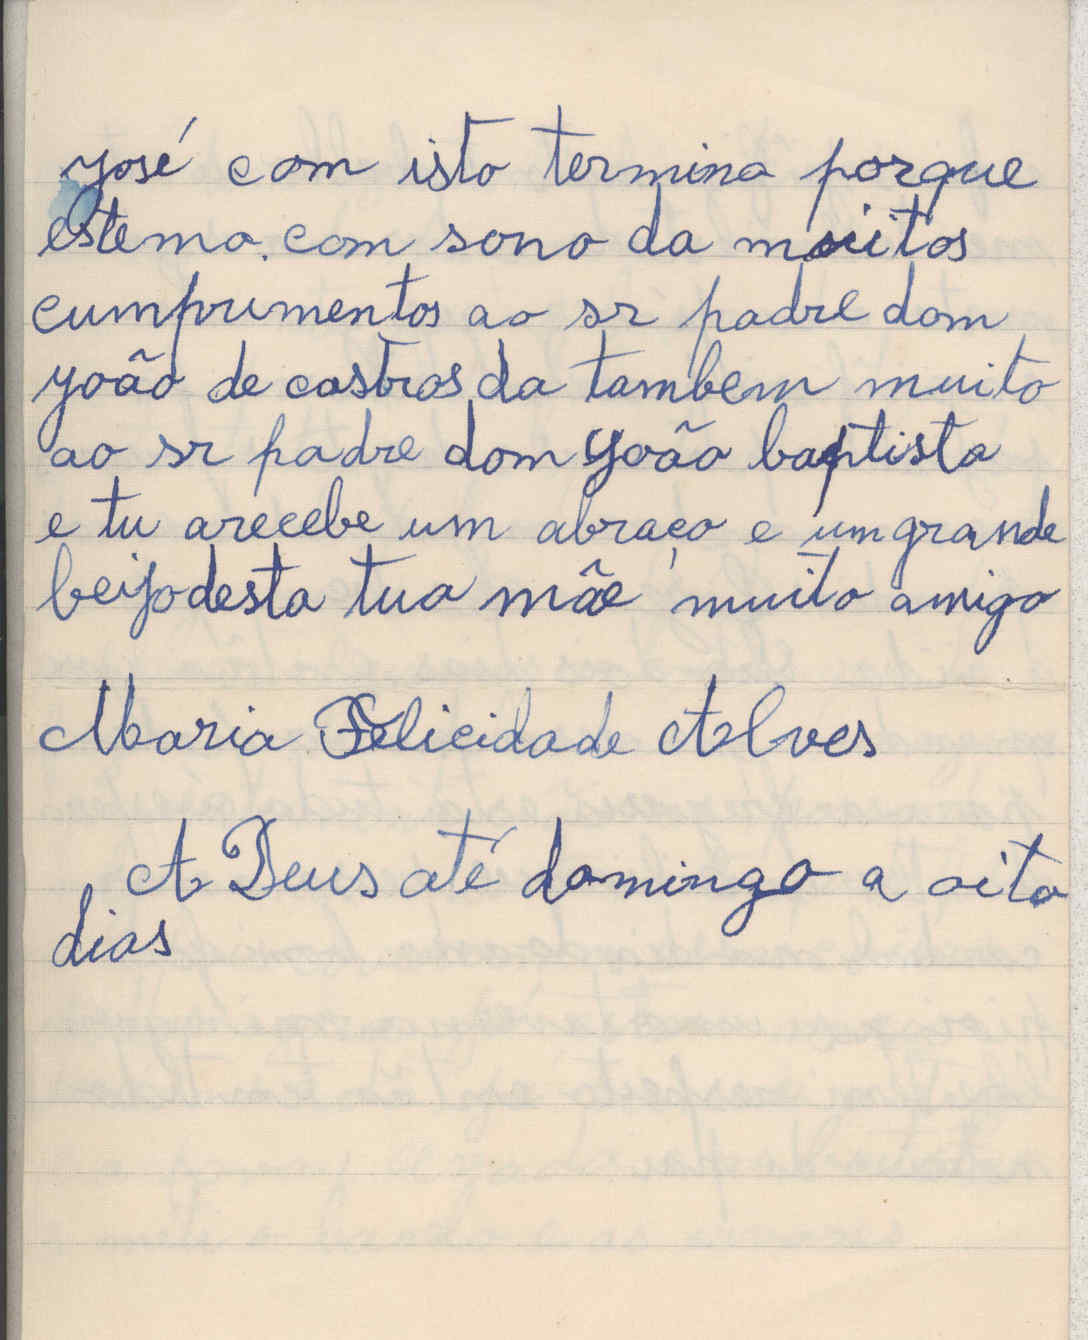 José com isto termina porque
estemo. com sono da muitos
cumprimentos ao sr padre dom
João de castros da tambem muito
ao sr padre dom João baptista
e tu arecebe um abraço e um grande
beijo desta tua mãe muito amiga
Maria Felicidade Alves
A Deus até domingo a oito
dias